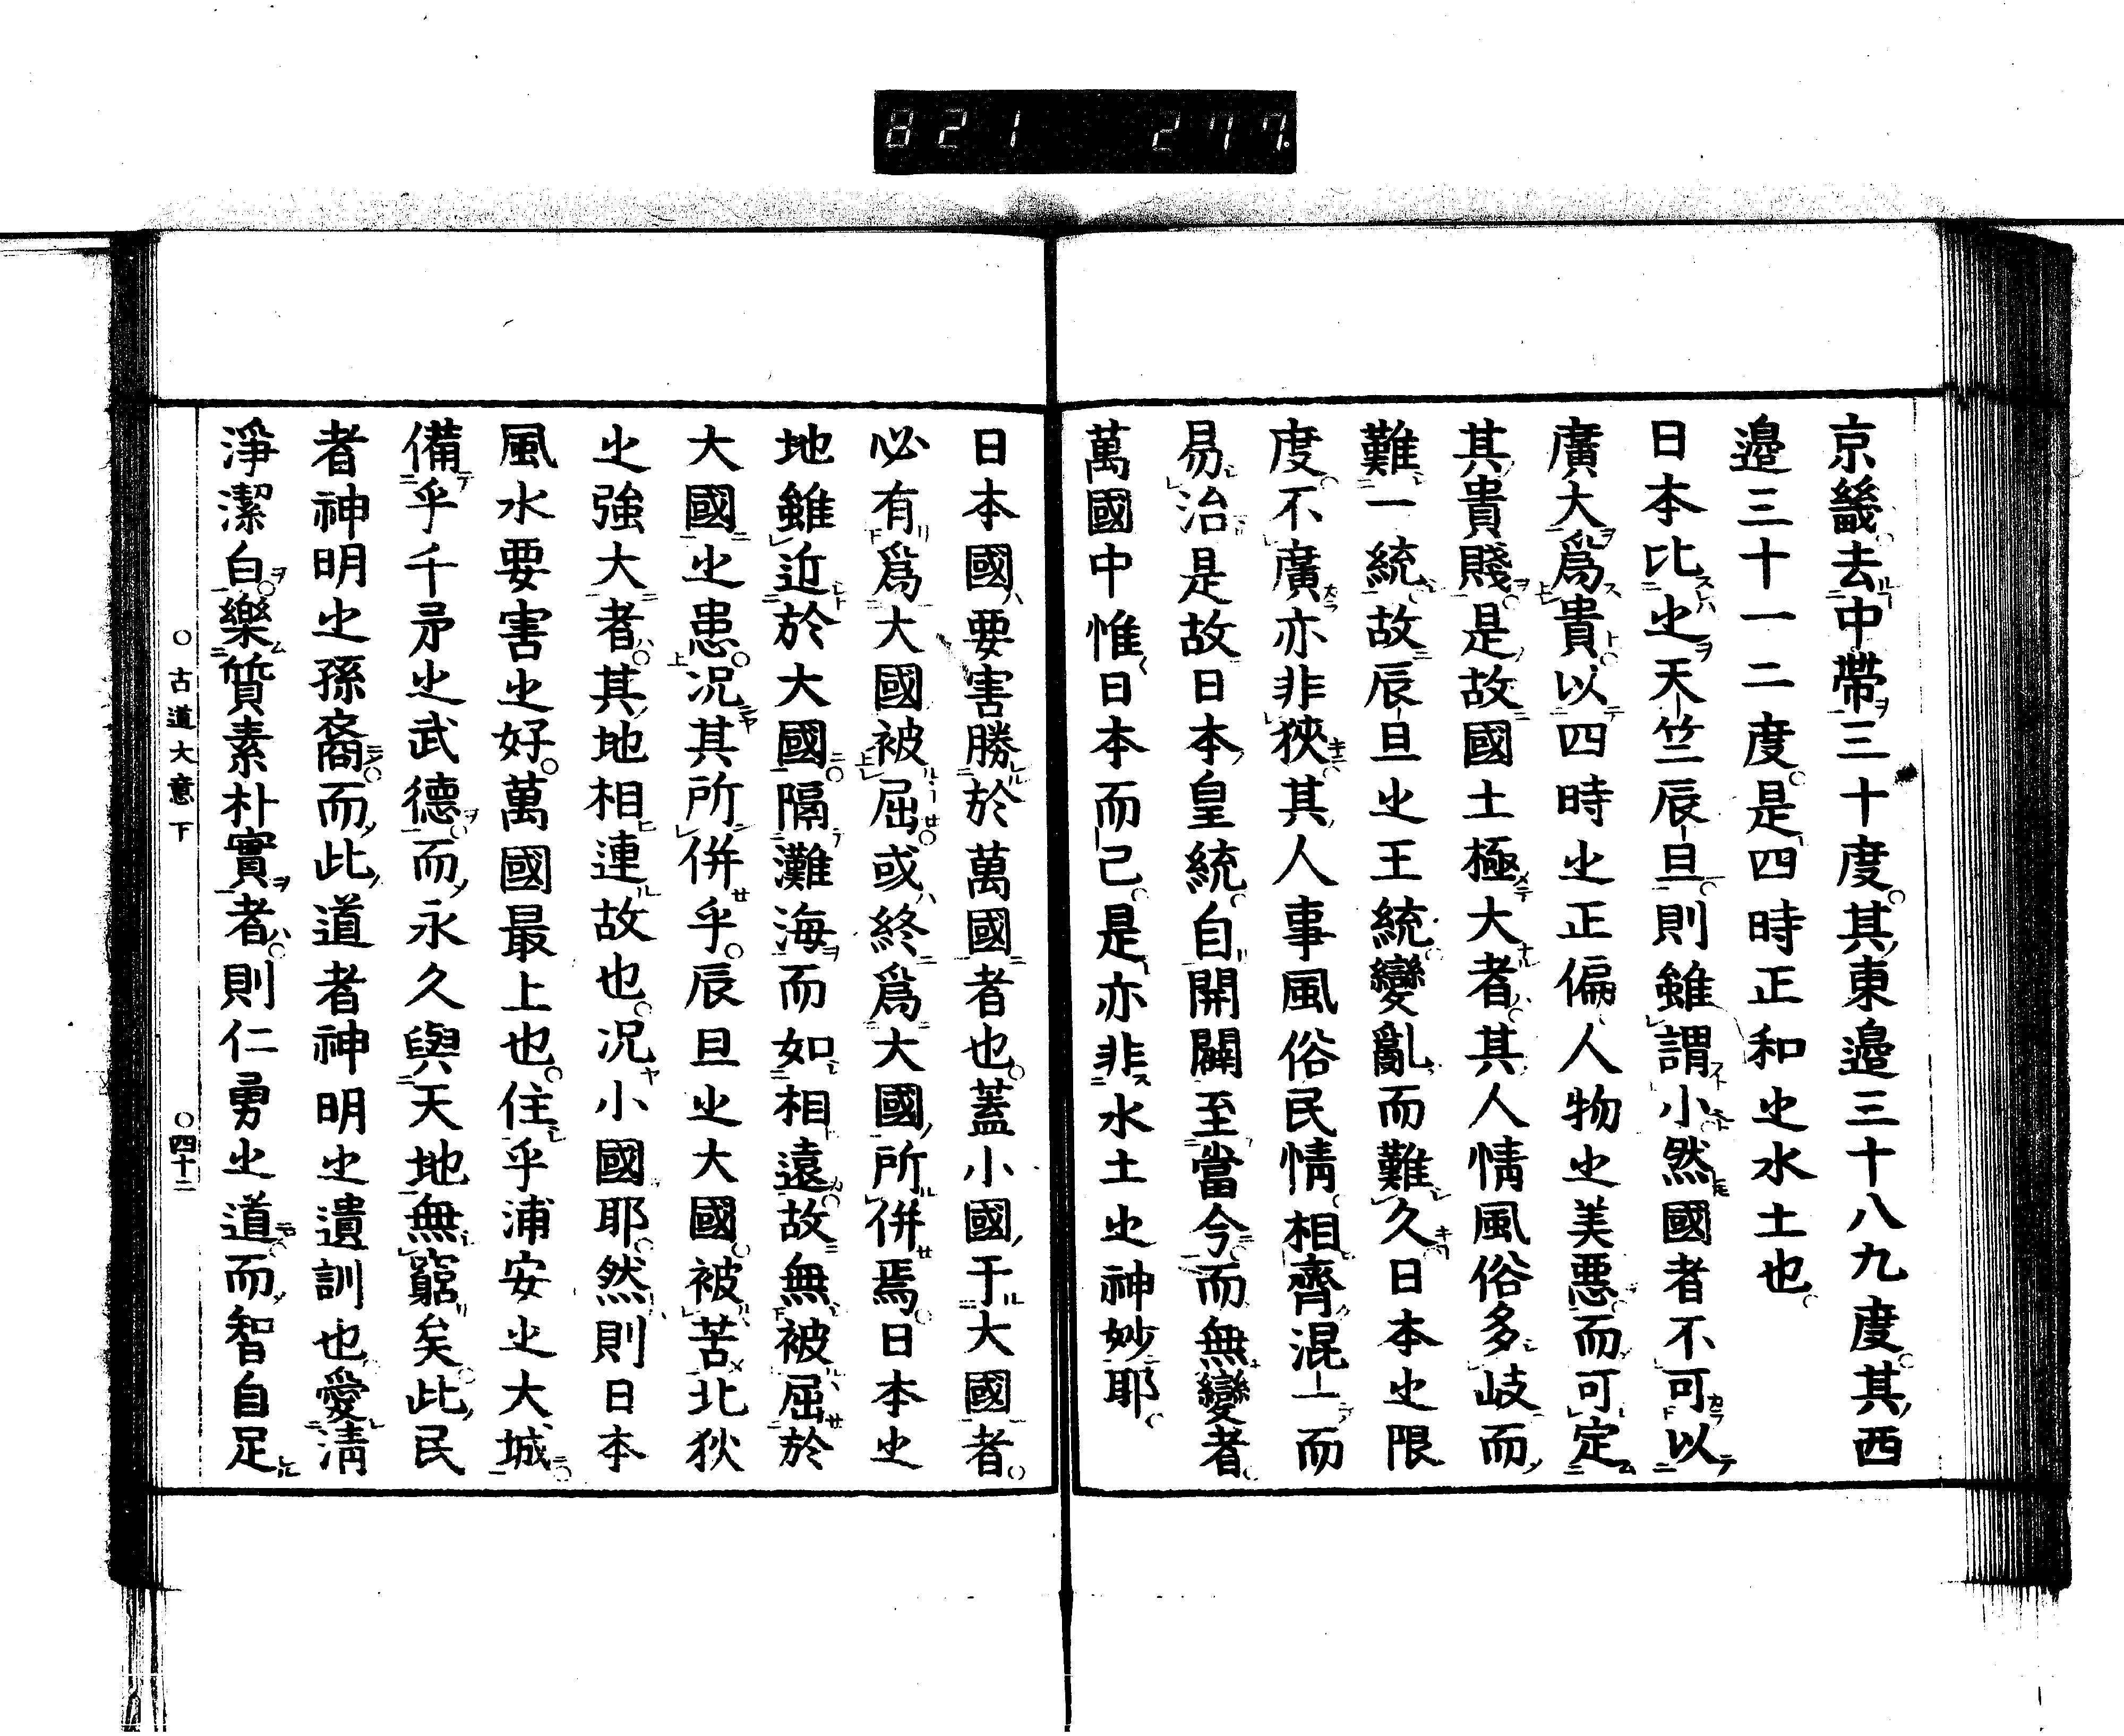 821 277.
京畿去中帶三十度其東邉三十八九度其西
邉三十一二度是四時正和之水土也
日本比之天竺辰旦則雖謂小然國者不可以
廣大爲貴以四時之正偏人物之美悪而可定
其貴賤是故國土極大者其人情風俗多岐而
難一統故辰旦之王統變亂而難久日本之限
度不廣亦非狹其人事風俗民情相齊混一而
易治是故日本皇統自開闢至當今而無變者
萬國中惟日本而已是亦非水土之神妙耶
日本國要害勝於萬國者也蓋小國于大國者
必有爲大國被屈或終爲大國所併焉日本之
地雖近於大國隔灘海而如相遠故無被屈於
大國之患况其所併乎辰旦之大國被苦北狄
之強大者其地相連故也况小國耶然則日本
風水要害之好萬國最上也住乎浦安之大城
備乎千矛之武德而永久與天地無窮矣此民
者神明之孫裔而此道者神明之遺訓也愛清
淨潔白樂質素朴實者則仁勇之道而智自足
○古道大意下 ○四十二